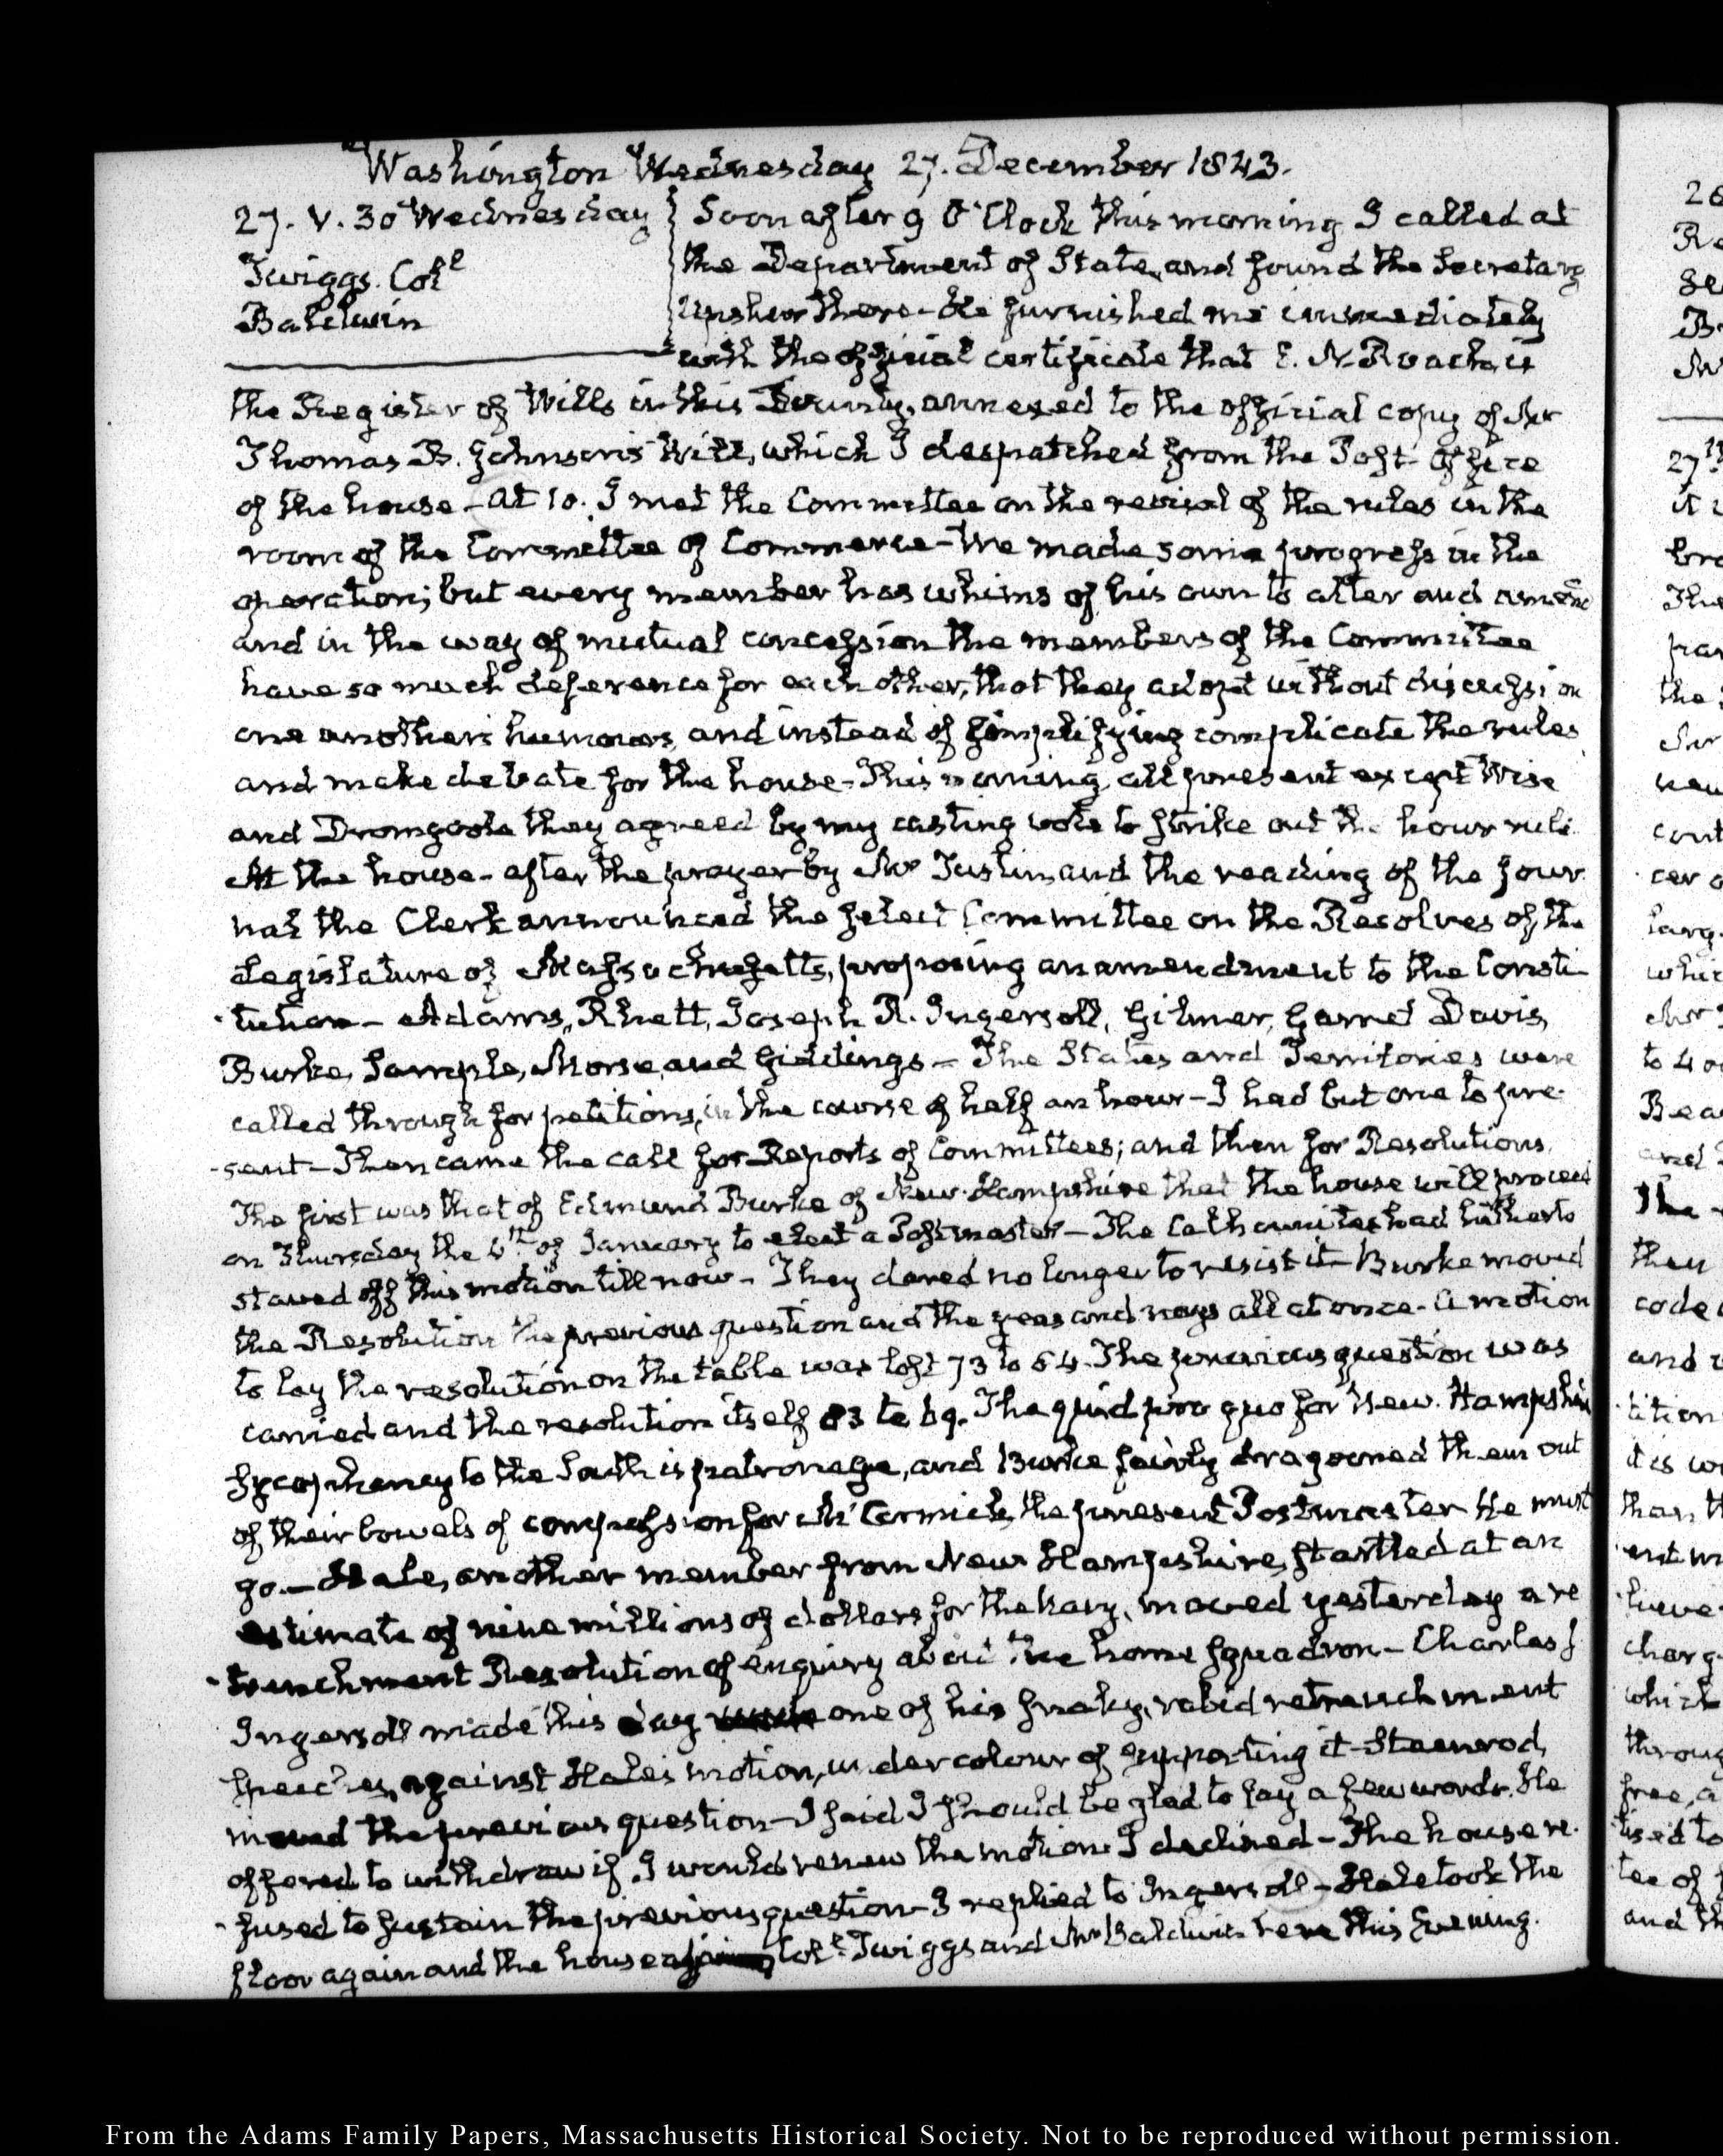 Washington Wednesday 27. December 1843.
27. V. 30 Wednesday
Twiggs. Col.l
Baldwin
Soon after 9 O'Clock this morning I called at
the Department of State, and found the Secretary
Upshur there - He furnished me immediately
with the official certificate that E. N. Roach, is
the Register of Wills in this County, annexed to the official copy of Mr
Thomas B. Johnson's Will, which I despatched from the Post-Office
of the house - At 10. I met the Committee on the revisal of the rules in the
room of the Committee of Commerce - We made some progress in the
operation; but every member has whims of his own to alter and amend
and in the way of mutual concession the members of the Committee
have so much deference for each other, that they adopt without discussion
one another's humours, and instead of simplifying complicate the rules
and make debate for the house - This morning, all present except Wise
and Dromgoole they agreed by my casting vote to strike out the hour rule.
At the house - after the prayer by Mr Tustin, and the reading of the Jour-
nal the Clerk announced the select Committee on the Resolves of the
Legislature of Massachusetts, proposing an amendment to the Consti-
tution - Adams, Rhett, Joseph R. Ingersoll, Gilmer, Garret Davis,
Burke, Sample, Morse, and Giddings - The States and Territories were
called through for petitions, in the course of half an hour - I had but one to pre-
-sent - Then came the call for Reports of Committees; and then for Resolutions.
The first was that of Edmund Burke of New-Hampshire that the house will proceed
on Thursday the 4th of January to elect a Postmaster - The had hitherto
staved off this motion till now - They dared no longer to resist it - Burke moved
the Resolution the previous question and the yeas and nays all at once - A motion
to lay the resolution on the table was lost 73 to 84. The previous question was
carried and the resolution itself 83 to 69. The quid pro quo for New-Hampshire
sycophancy to the South is patronage, and Burke fairly dragooned them out
of their bowels of compassion for McCormick, the present Postmaster He must
go. - Hale, another member from New Hampshire, startled at an
estimate of nine millions of dollars for the Navy, moved yesterday a re
-trenchment Resolution of enquiry about the home squadron - Charles J.
Ingersoll made this day one of his freaky, rabid retrenchment
speeches, against Hale's motion, under colour of supporting it - Steenrod,
moved the previous question - I said I should be glad to say a few words. He
offered to withdraw if I would renew the motion I declined - The house re-
-fused to sustain the previous question - I replied to Ingersoll - Hale took the
floor again and the house Coll. Twiggs and Mr Baldwin here this Evening.
From the Adams Family Papers, Massachusetts Historical Society. Not to be reproduced without permission.